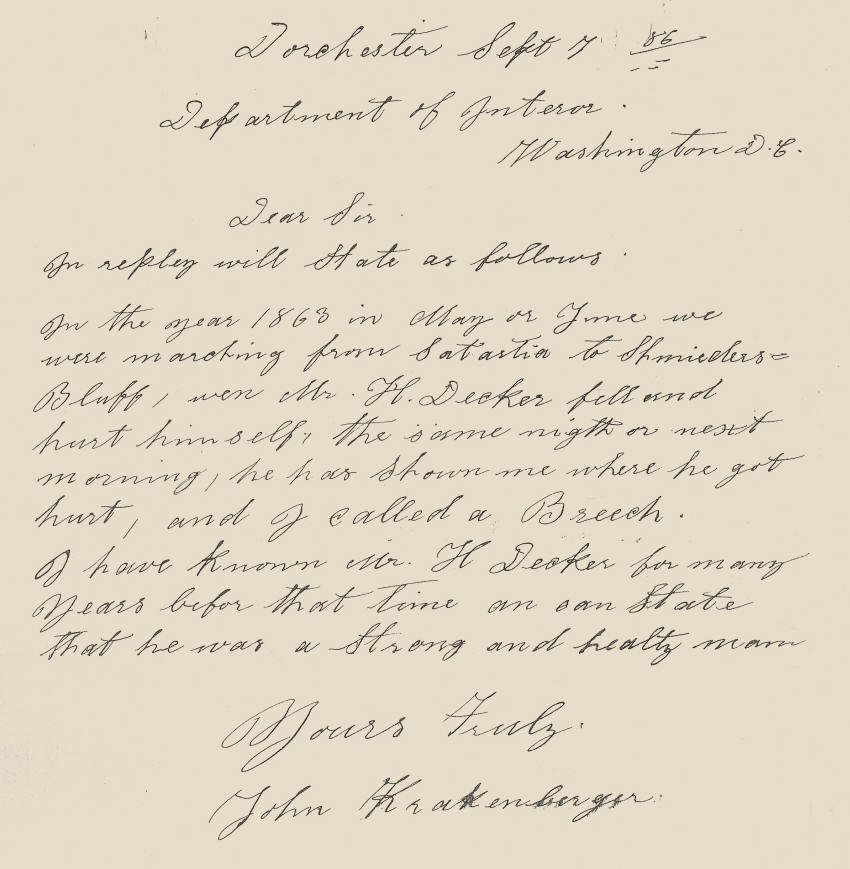 Dorchester Sept 7 86
Department of Interor.
Washington D.C.
Dear Sir.
In repley will State as follows.
In the year 1863 in May or June we
were marching from Satastia to Shmieders=
Bluff, wen Mr. H. Decker fell and
hurt himself, the same nigth or next
morning, he has shown me where he got
hurt, and I called a Breech.
I have known Mr. H Decker for many
Years befor that time an can State
that he was a Strong and healty mam
Yours Truly.
John Krakenberger.